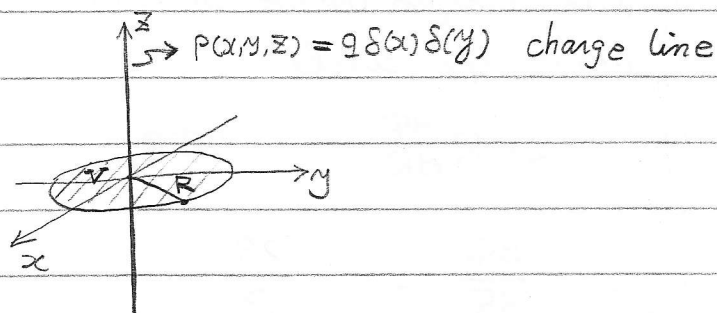 z
ρ(x,y,z) = q δ(x) δ(y) charge line
V
R
y
x